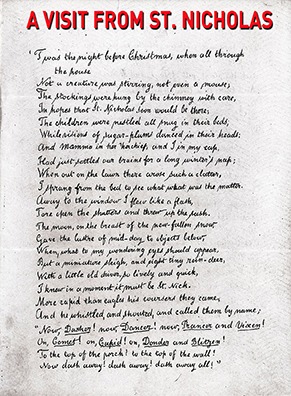 A VISIT FROM ST. NICHOLAS
'Twas the night before Christmas, when all through
the house
Not a creature was stirring, not even a mouse;
The stockings were hung by the chimney with care,
In hopes that St. Nicholas soon would be there;
The children were nestled all snug in their beds,
While visions of sugar-plums danced in their heads;
And Mamma in her 'kerchief, and I in my cap,
Had just settled our brains for a long winter's nap;
When out on the lawn there arose such a clatter,
I sprang from the bed to see what was the matter.
Away to the window I flew like a flash,
Tore open the shutters and threw up the sash.
The moon, on the breast of the new-fallen snow,
Gave the lustre of mid-day to objects below,
When, what to my wondering eyes should appear,
But a miniature sleigh, and eight tiny rein-deer,
With a little old driver, so lively and quick,
I knew in a moment it must be St. Nick.
More rapid than eagles his coursers they came,
And he whistled, and shouted, and called them by name;
"Now, Dasher! now, Dancer! now, Prancer and Vixen!
On, Comet! on, Cupid! on, Donder and Blitzen!
To the top of the porch! to the top of the wall!
Now dash away! dash away! dash away all!"